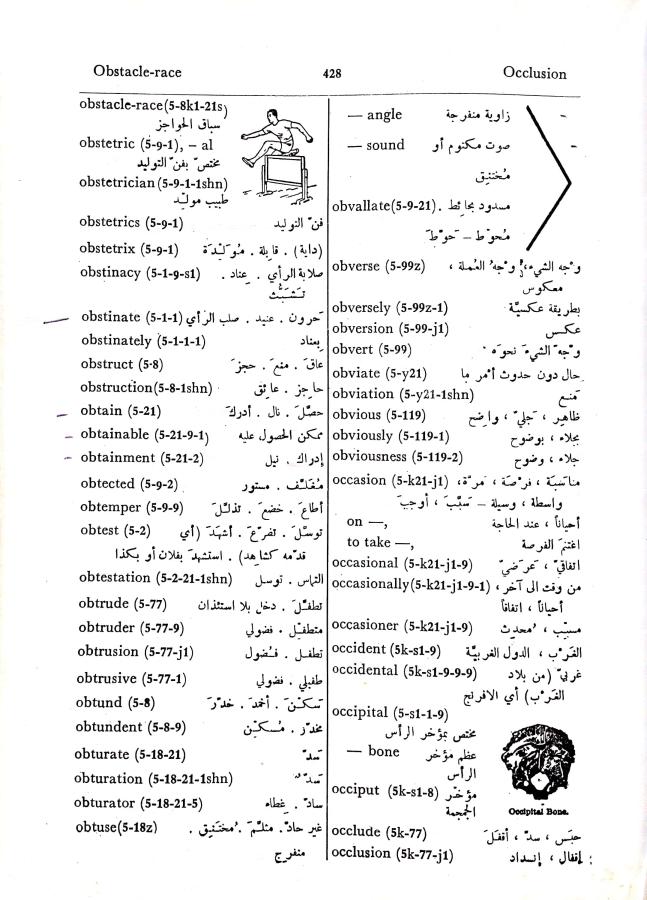 Obstacle-race 428 Occlusion
obstacle-race(5-8k1-21s)
سباق الحواجز
obstetric (5-9-1), – al
مختصّ بفنّ التوليد
obstetrician (5-9-1-1shn)
طبيب مولّد
obstetrics (5-9-1) فنّ التوليد
obstetrix (5-9-1) (داية) . قابلة . مُوَلِّدَة
obstinacy (5-1-9-s1) صلابة الرأي . عناد .
تشبُّث
obstinate (5-1-1) حَرون . عنيد . صلب الرأي
obstinately (5-1-1-1) بِعناد
obstruct (5-8) عاقَ . منعَ . حجزَ
obstruction(5-8-1shn) حاجز . عائق
obtain (5-21) حصَّلَ . نال . أدركَ
obtainable (5-21-9-1) ممكن الحصول عليه
obtainment (5-21-2) إدراك . نيل
obtected (5-9-2) مُغَلَّف . مستور
obtemper (5-9-9) أطاعَ . خضعَ . تذلَّلَ
obtest (5-2) توسَّلَ . تضرَّعَ . أشهَدَ (أي
قدّمه كشاهد) . استشهدَ بفلان أو بكذا
obtestation (5-2-21-1shn) التماس . توسل
obtrude (5-77) تطفَّلَ . دخل بلا استئذان
obtruder (5-77-9) متطفّل . فضولي
obtrusion (5-77-j1) تطفل . فُضول
obtrusive (5-77-1) طفيلي . فضولي
obtund (5-8) سَكَّنَ . أخمَدَ . خدَّرَ
obtundent (5-8-9) مخدّر . مُسكّن
obturate (5-18-21) سَدَّ
obturation (5-18-21-1shn) سَدّ
obturator (5-18-21-5) سادّ . غطاء
obtuse(5-18z) غير حادّ . مثلَّم . مُختنِق .
منفرج
— angle زاوية منفرجة
— sound صوت مكتوم أو
مُختنِق
obvallate(5-9-21) مسدود بحائط .
مُحوَّط – حَوَّطَ
obverse (5-99z) وَجه الشيء ، وجهُ العُملة ،
معكوس
obversely (5-99z-1) بطريقة عكسيّة
obversion (5-99-j1) عكس
obvert (5-99) وجّهَ الشيءَ نحوَه
obviate (5-y21) حال دون حدوث أمر ما
obviation (5-y21-1shn) مَنع
obvious (5-119) ظاهر ، جليّ ، واضح
obviously (5-119-1) بجلاء ، بوضوح
obviousness (5-119-2) جلاء ، وضوح
occasion (5-k21-j1) مناسَبَة ، فرصَة ، مَرَّة ،
واسطة ، وسيلة – سبَّبَ ، أوجبَ
on —, أحياناً ، عند الحاجة
to take —, اغتنمَ الفرصة
occasional (5-k21-j1-9) اتفاقيّ ، عَرَضيّ
occasionally(5-k21-j1-9-1) من وقت الى آخر ،
أحياناً ، اتفاقاً
occasioner (5-k21-j1-9) مسبّب ، مُحدِث
occident (5k-s1-9) الغَرْب ، الدول الغربيّة
occidental (5k-s1-9-9-9) غربيّ (من بلاد
الغَرْب) أي الافرنج
occipital (5-s1-1-9)
مختص بمؤخر الرأس
— bone عظم مؤخر
الرأس
occiput (5k-s1-8) مؤخَّر
الجمجمة
Occipital Bone.
occlude (5k-77) حبَسَ ، سدَّ ، أقفَلَ
occlusion (5k-77-j1) إقفال ، إنسداد ;